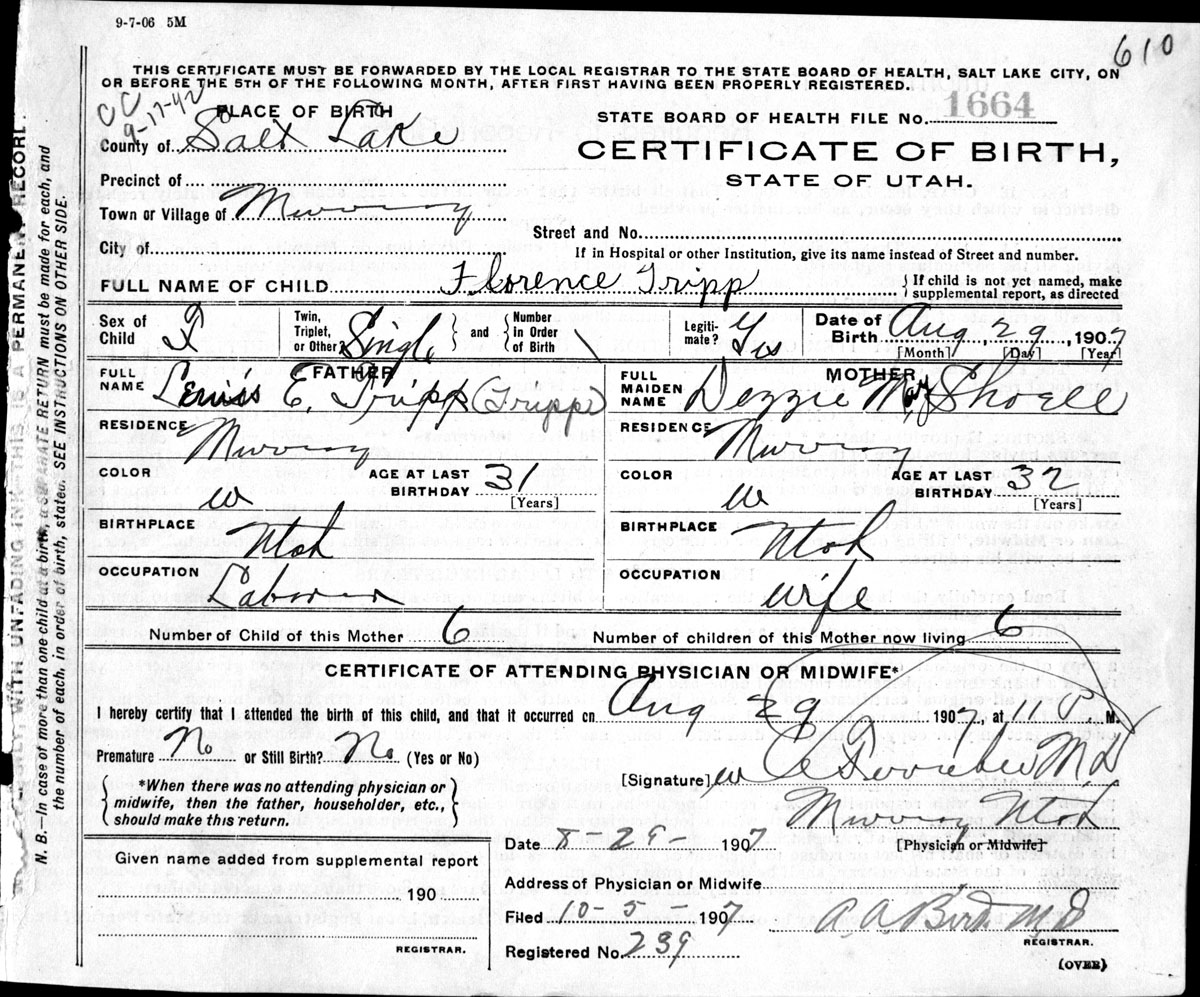 9-7-06 5M
610
THIS CERTIFICATE MUST BE FORWARDED BY THE LOCAL REGISTRAR TO THE STATE BOARD OF HEALTH, SALT LAKE CITY, ON
OR BEFORE THE 5TH OF THE FOLLOWING MONTH, AFTER FIRST HAVING BEEN PROPERLY REGISTERED.
CC
9-17-42
PLACE OF BIRTH
County of Salt Lake
Precinct of
Town or Village of Murray
City of
STATE BOARD OF HEALTH FILE NO. 1664
CERTIFICATE OF BIRTH,
STATE OF UTAH.
Street and No.
If in Hospital or other Institution, give its name instead of Street and number.
FULL NAME OF CHILD Florence Tripp
If child is not yet named, make
supplemental report, as directed
Sex of Child F
Twin, Triplet, or Other? Single and Number in Order of Birth
Legitimate? Yes
Date of Birth Aug 29, 1907
[Month] [Day] [Year]
FATHER
FULL NAME E. Tripp (Tripp)
RESIDENCE Murray
COLOR W AGE AT LAST BIRTHDAY 31 [Years]
BIRTHPLACE Utah
OCCUPATION Laborer
MOTHER
FULL MAIDEN NAME Dezzie May Shoell
RESIDENCE Murray
COLOR W AGE AT LAST BIRTHDAY 32 [Years]
BIRTHPLACE Utah
OCCUPATION Wife
Number of Child of this Mother 6 Number of children of this Mother now living 6
CERTIFICATE OF ATTENDING PHYSICIAN OR MIDWIFE*
I hereby certify that I attended the birth of this child, and that it occurred on Aug 29 1907, at 11 P. M.
Premature No or Still Birth? No (Yes or No)
*When there was no attending physician or
midwife, then the father, householder, etc.,
should make this return.
[Signature] M D
Murray Utah
[Physician or Midwife]
Date 8-29- 1907
Given name added from supplemental report
190
REGISTRAR.
Address of Physician or Midwife
Filed 10-5- 1907
Registered No. 239
A. A. Bird. M.D
REGISTRAR.
(OVER)
N. B.—In case of more than one child at a birth, a SEPARATE RETURN must be made for each, and
the number of each, in order of birth, stated. SEE INSTRUCTIONS ON OTHER SIDE.
WITH UNFADING INK—THIS IS A PERMANENT RECORD